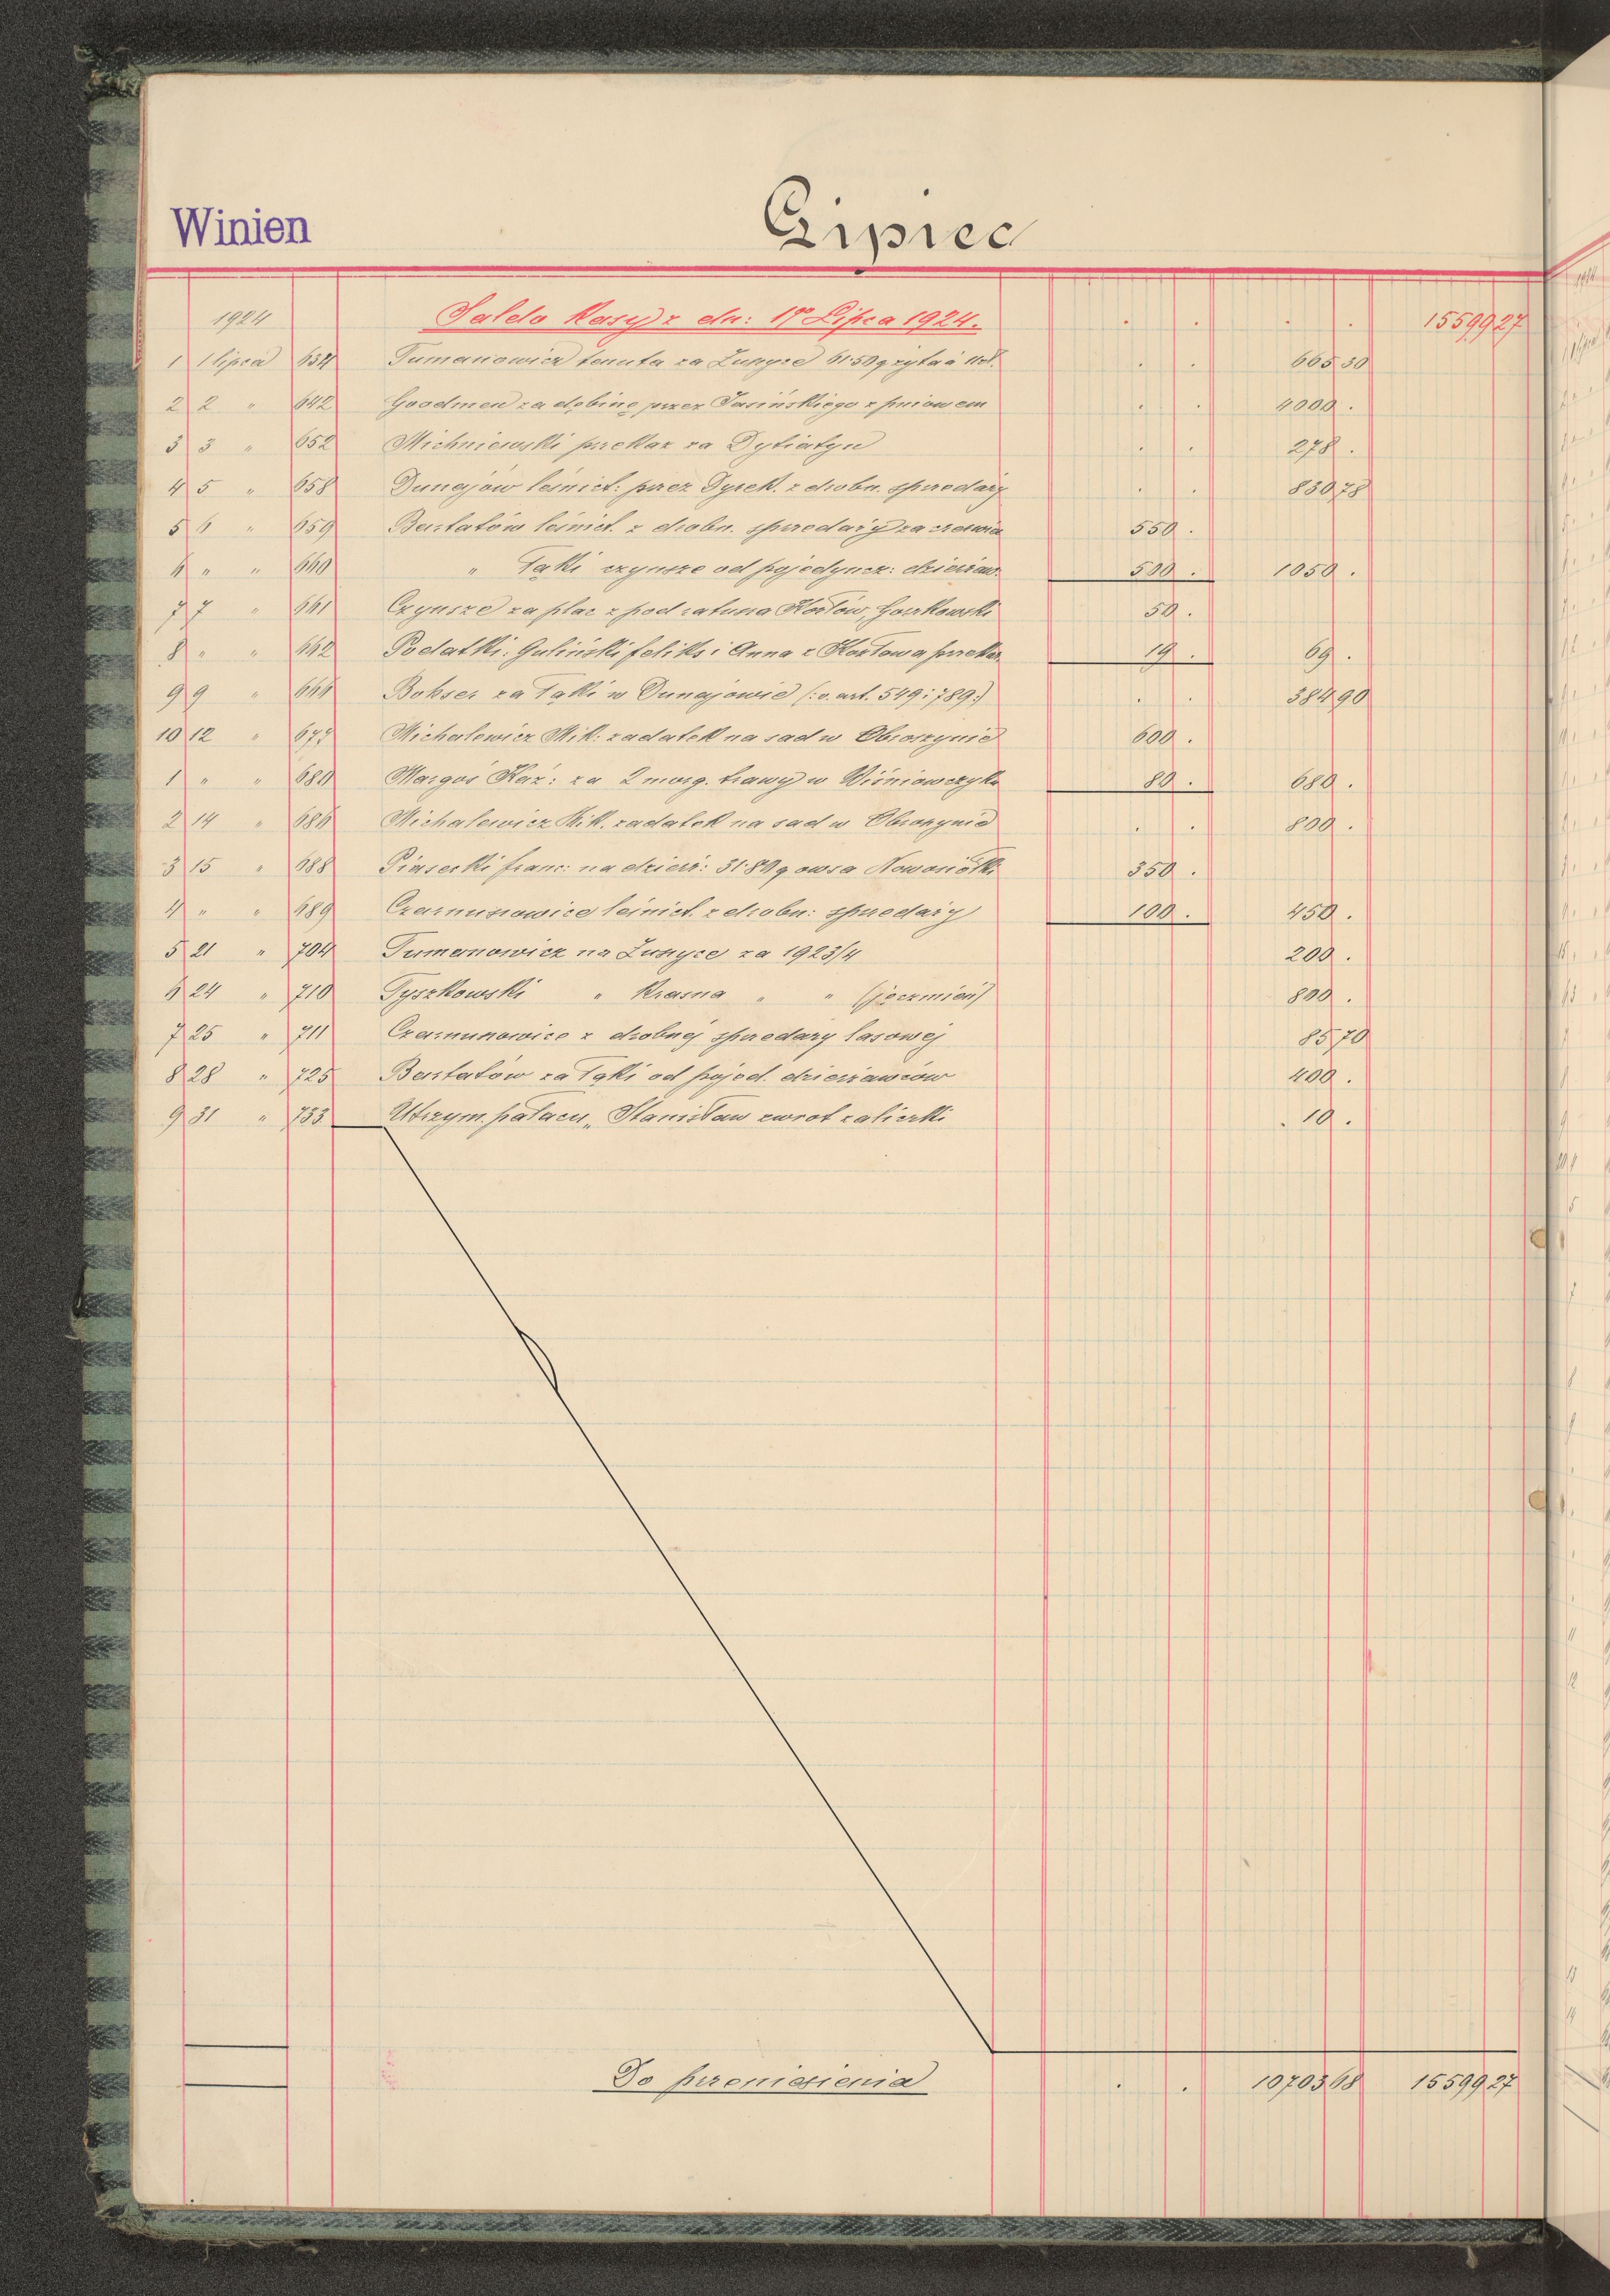 Winien
Lipiec
1924 Saldo Kasy z dn: 1go Lipca 1924. 15599 27
1 1 lipca 634 Tumanowicz tenuta za Łuszyce 61·50 q żyta à 665 30
2 2 " 642 Goodmen za dębinę przez Jasińskiego z pniowem 4000 .
3 3 " 652 Michniewski przekaz za Dytiatyn 278 .
4 5 " 658 Dunajów leśnict: przez Dyrek. z drobn. sprzedaży 830 78
5 6 " 659 Bursztatów leśnict. z drobn. sprzedaży za czerwiec 550 .
6 " " 660 " Łąki czynsze od pojedyncz: dzierżaw. 500 . 1050 .
7 7 " 661 Czynsze za plac z pod ratusza Kozłów, Gorzkowski 50 .
8 " " 662 Podatki: Guliński Feliks i Anna z Kozłowa przekaz 19 . 69 .
9 9 " 666 Bokser za łąki w Dunajowie (: v. art. 549 i 789:) 384 90
10 12 " 677 Michalewicz Mik: zadatek na sad w Obroszynie 600 .
1 " " 680 Margoś Kaz: za 2 morg. trawy w Wiśniowczyku 80 . 680 .
2 14 " 686 Michalewicz Mik. zadatek na sad w Obroszynie 800 .
3 15 " 688 Piasecki Franc: na dzierż: 31·80 q owsa Nowosiółki 350 .
4 " " 689 Czarnuszowice leśnict. z drobn: sprzedaży 100 . 450 .
5 21 " 704 Tumanowicz na Łuszyce za 1923/4 200 .
6 24 " 710 Tyszkowski " Krasna " " (jęczmień) 800 .
7 25 " 711 Czarnuszowice z drobnej sprzedaży lasowej 85 70
8 28 " 725 Bursztatów za łąki od pojed. dzierżawców 400 .
9 31 " 733 Utrzym. pałacu, Stanisław zwrot zaliczki 10 .
Do przeniesienia 10703 68 15599 27